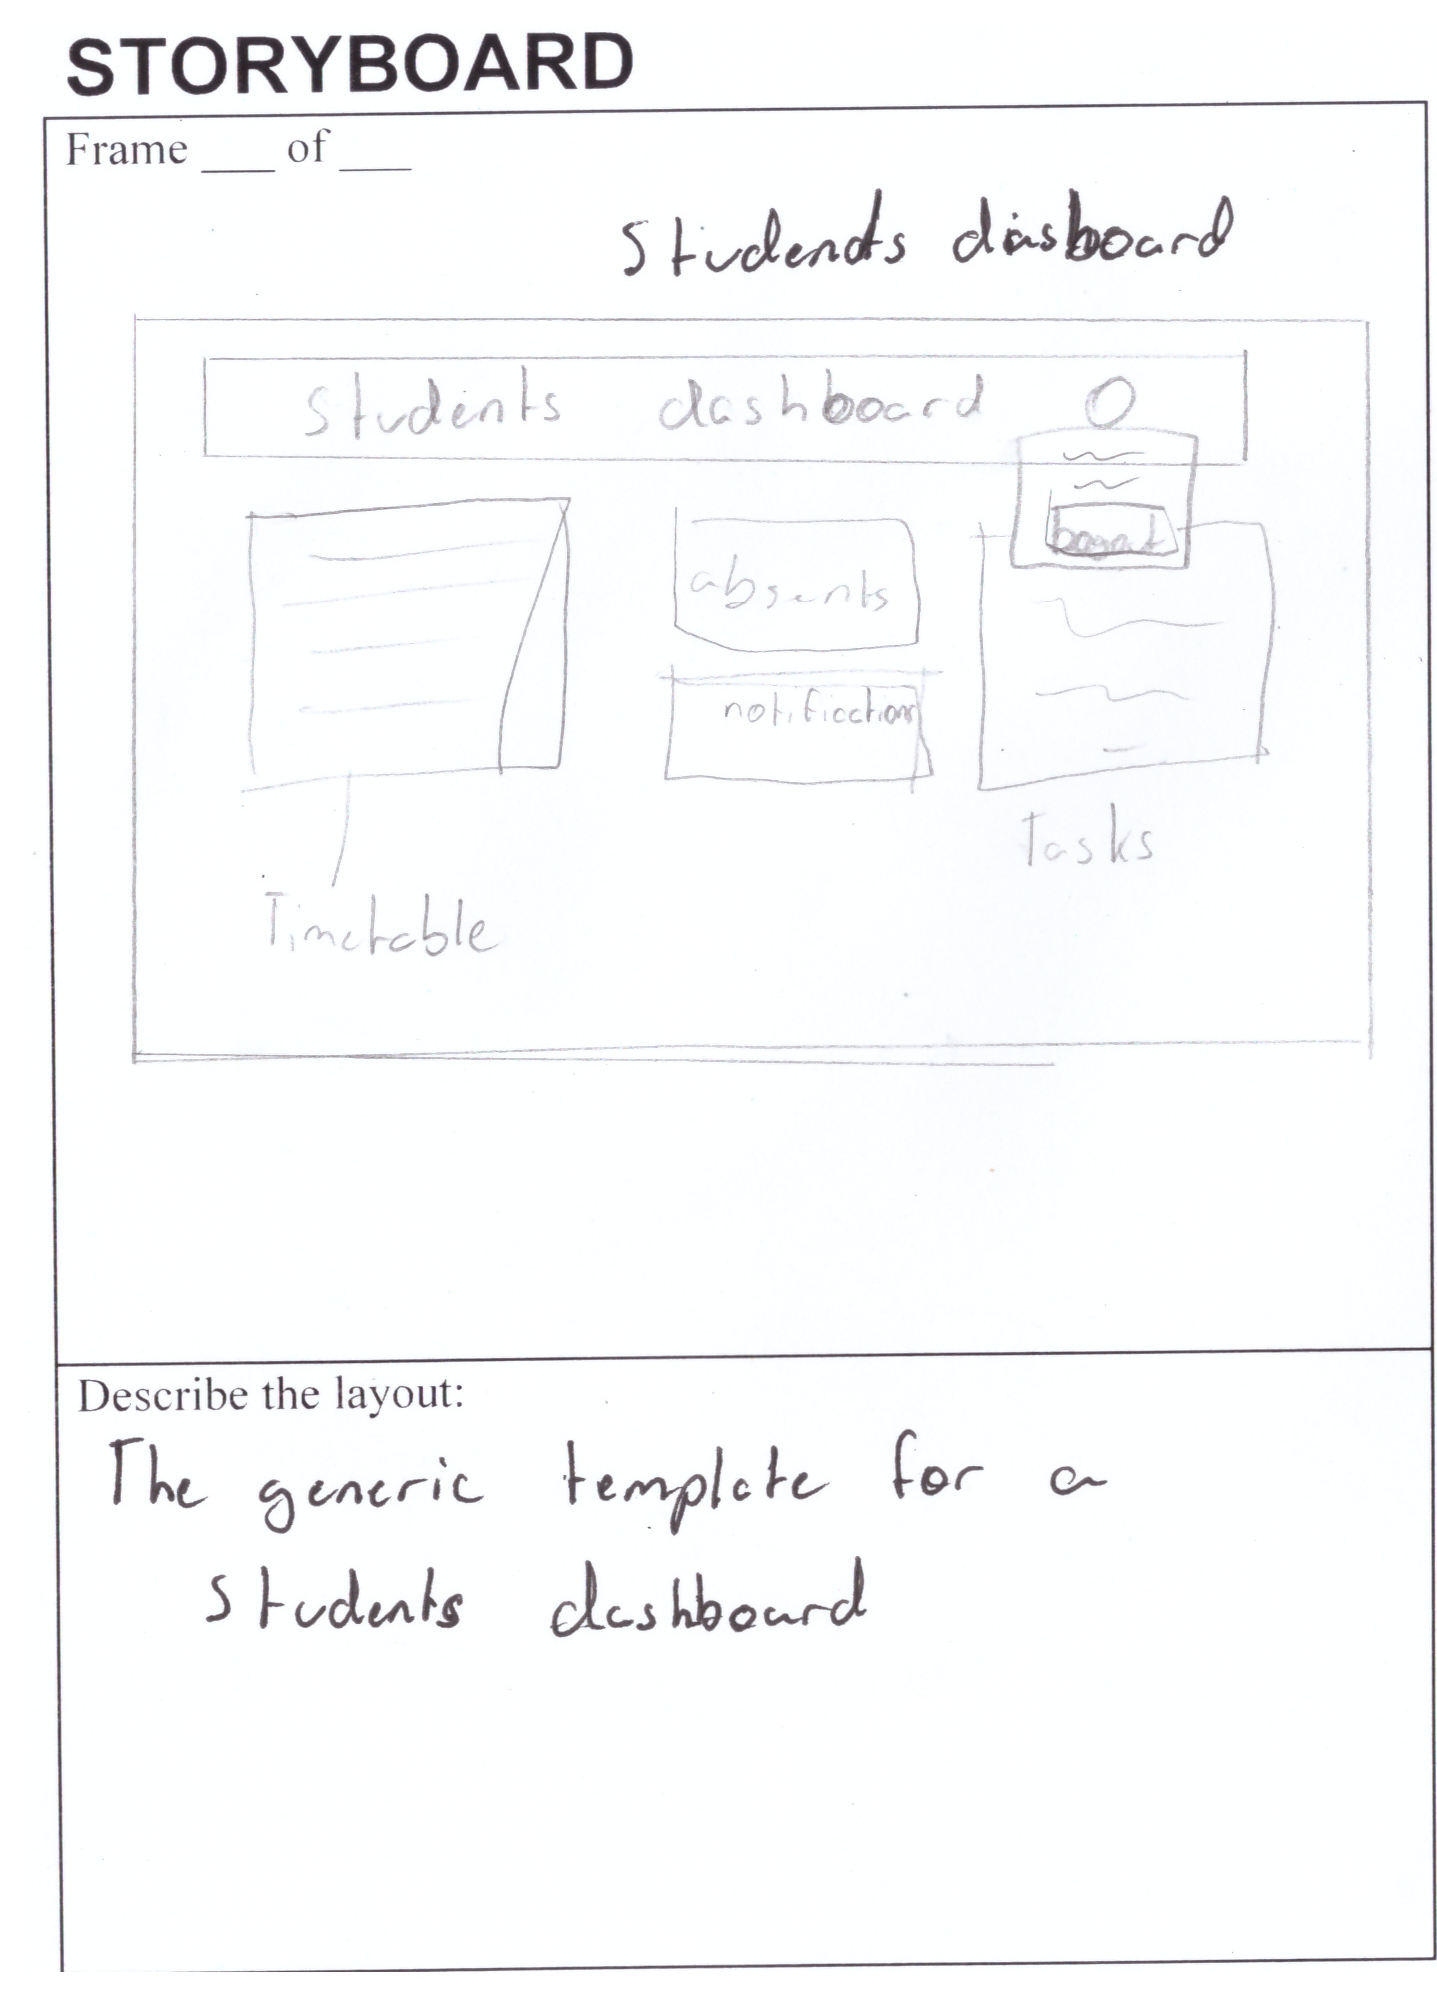 STORYBOARD
Frame ___ of ___
Students diasboard
Students dashboard
absents
notifiction
Tasks
Timetable
Describe the layout:
The generic template for a
students dashboard